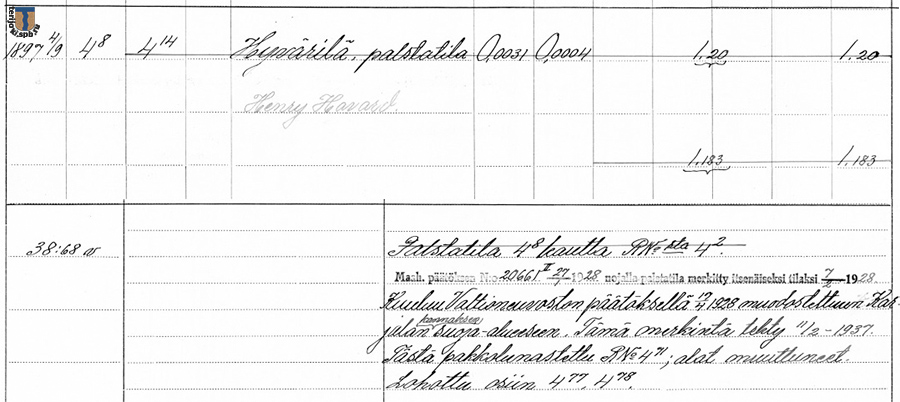 terijoki.spb.ru
1897 4/9 4⁸ 4¹⁴ Hyvärilä, palstatila 0,0031 0,0004 1.20 1.20
Henry Havard.
1.183 1.183
38:68 v Palstatila 4⁸ kautta RN:o sta 4².
Maah. päätöksen N:o 20661 II 27/1 1928 nojalla palstatila merkitty itsenäiseksi tilaksi 7/2 1928
Kuuluu Valtioneuvoston päätöksellä 19/4 1928 muodostettuun Kar-
jalan kannaksen suoja-alueeseen. Tämä merkintä tehty 11/2-1937.
Tästä pakkolunastettu RN:o 4⁷¹; alat muuttuneet.
Lohottu osiin 4⁷⁷, 4⁷⁸.